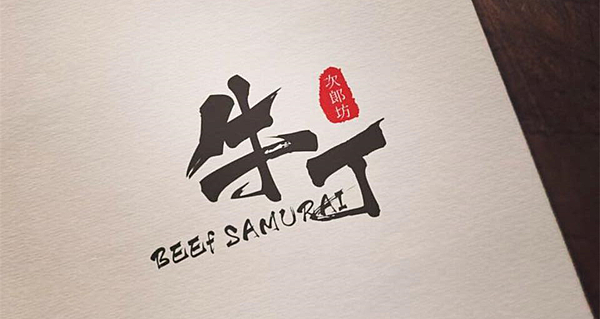 牛丁
次郎坊
BEEf SAMURAI